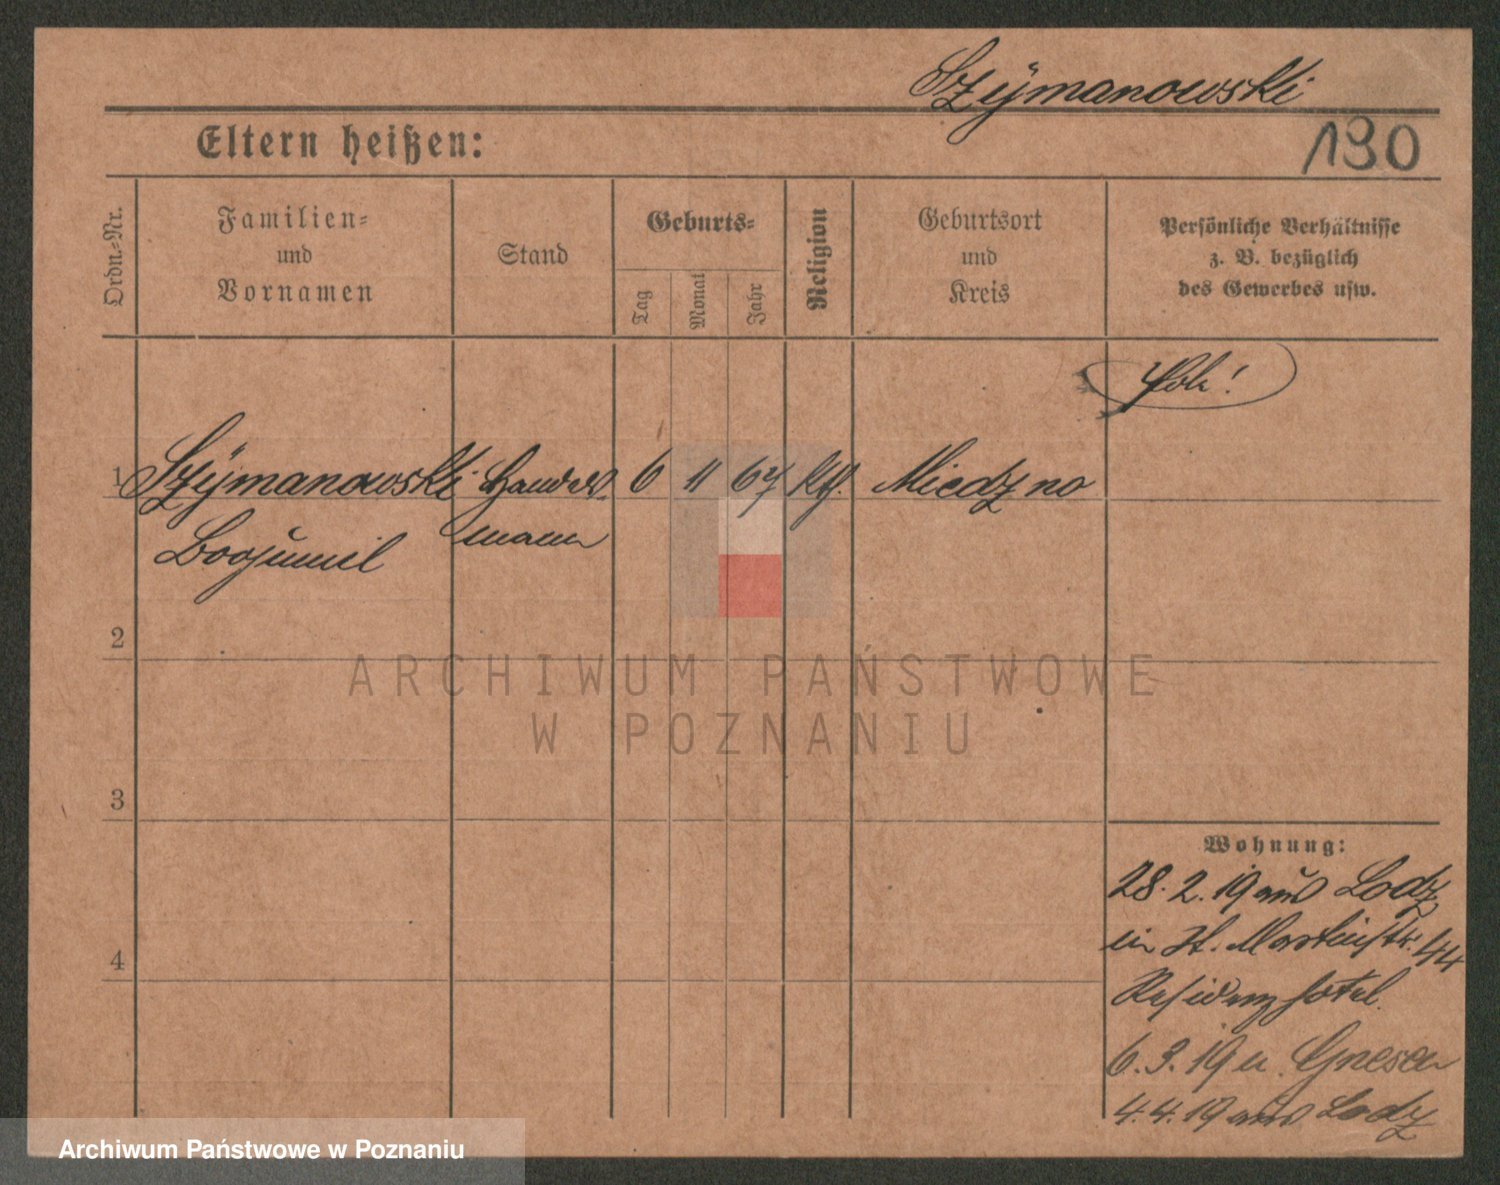 Szÿmanowski
Eltern heißen:
130
Ordn.=Nr.
Familien=
und
Vornamen
Stand
Geburts=
Tag
Monat
Jahr
Religion
Geburtsort
und
Kreis
Persönliche Verhältnisse
z. B. bezüglich
des Gewerbes usw.
Pole!
1 Szÿmanowski Handels= 6 11 67 kth. Miedzno
Bogumil mann
2
ARCHIWUM PAŃSTWOWE
W POZNANIU
3
Wohnung:
28.2.19 aus Lodz
in St. Martinstr. 44
Residenzhotel.
4
6.3.19 n. Gnesen
4.4.19 aus Lodz
Archiwum Państwowe w Poznaniu